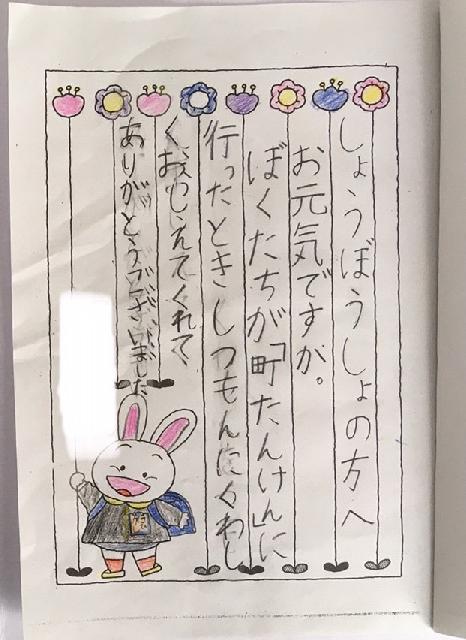 しょうぼうしょの方へ
お元気ですが。
ぼくたちが「町たんけん」に
行ったときしつもんにくわし
く、おしえてくれて
ありがとうございました